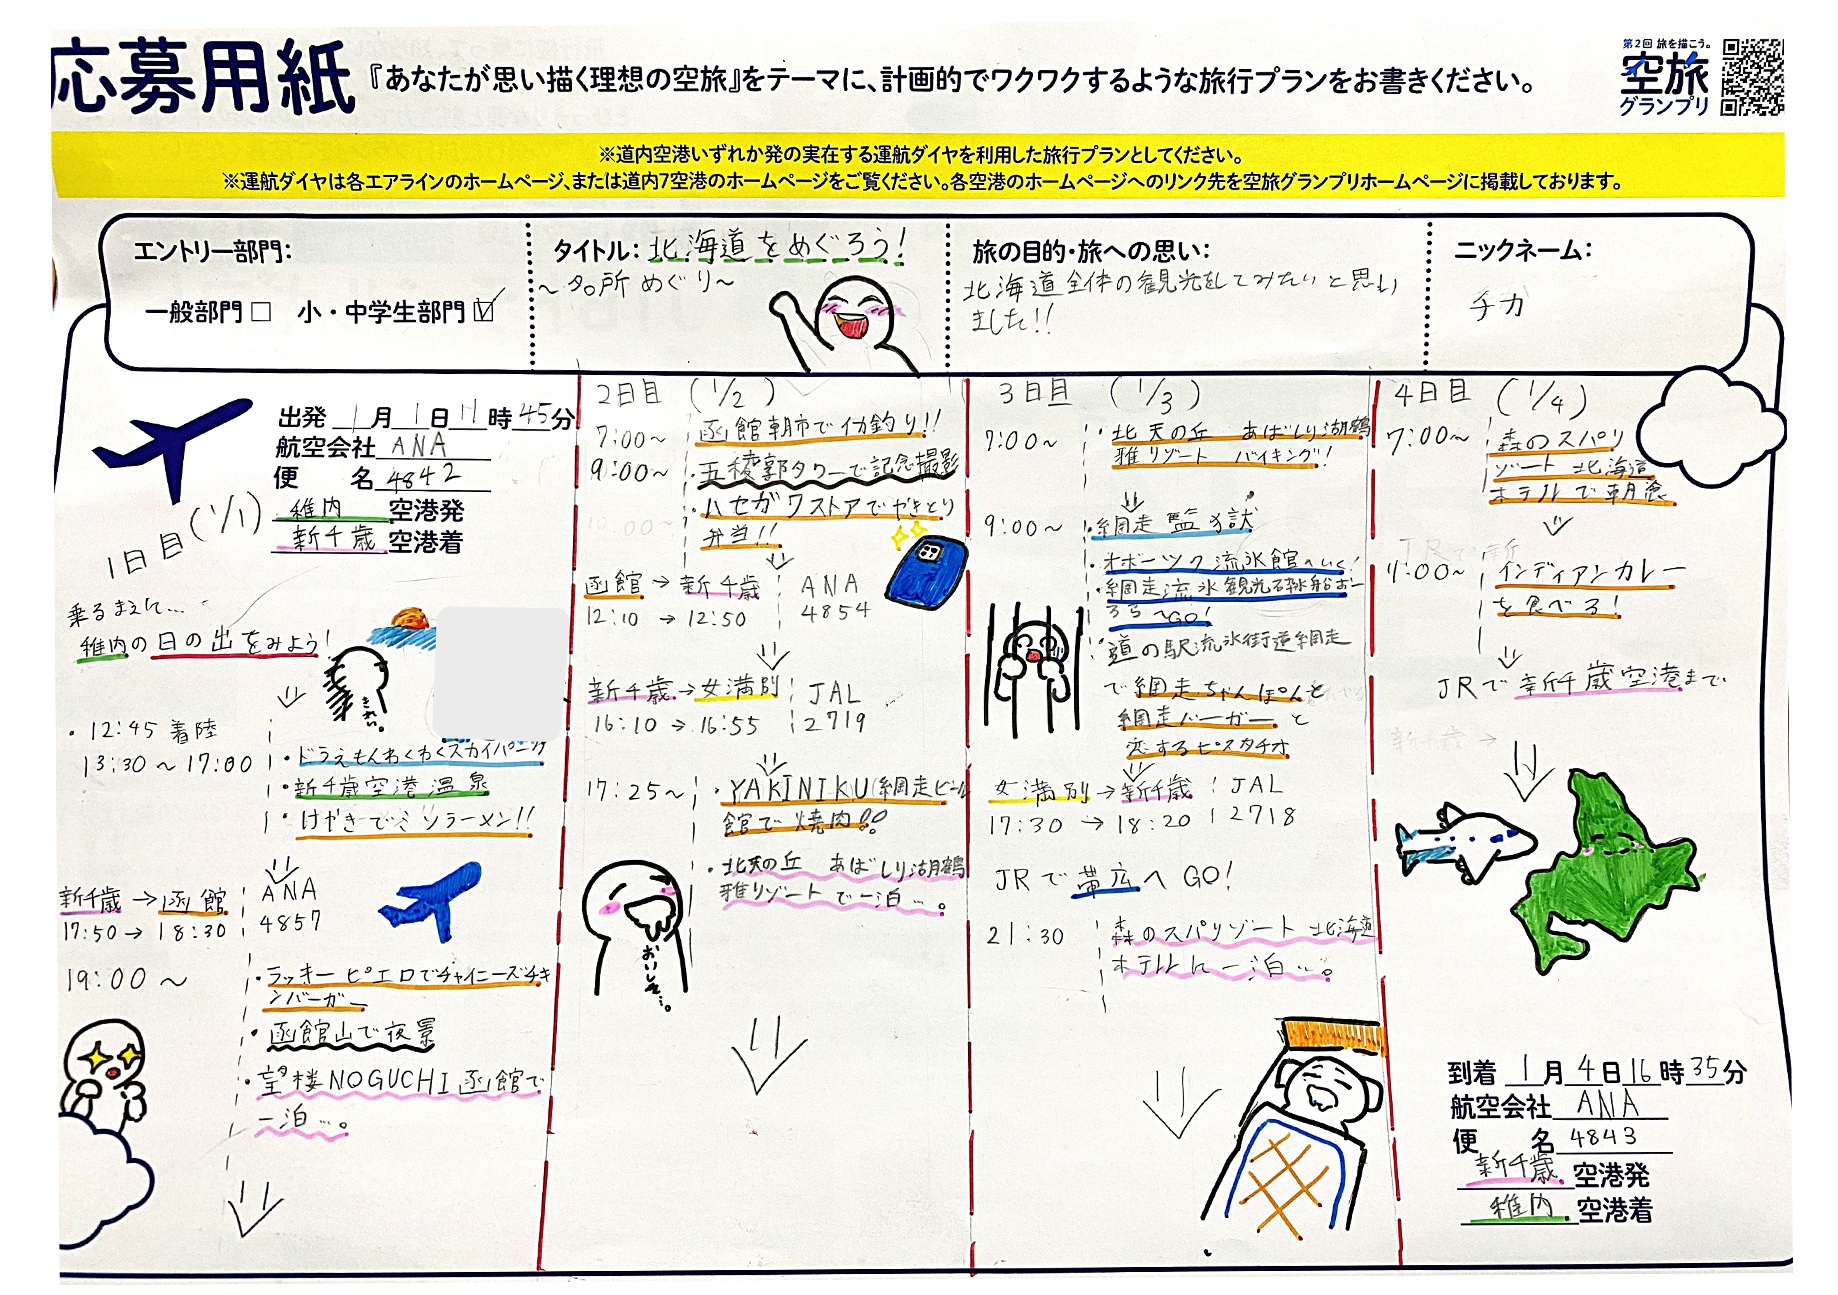 応募用紙
『あなたが思い描く理想の空旅』をテーマに、計画的でワクワクするような旅行プランをお書きください。
第2回 旅を描こう。
空旅
グランプリ
※道内空港いずれか発の実在する運航ダイヤを利用した旅行プランとしてください。
※運航ダイヤは各エアラインのホームページ、または道内7空港のホームページをご覧ください。各空港のホームページへのリンク先を空旅グランプリホームページに掲載しております。
エントリー部門:
一般部門□ 小・中学生部門☑
タイトル: 北海道をめぐろう!
~名所めぐり~
旅の目的・旅への思い:
北海道全体の観光をしてみたいと思い
ました!!
ニックネーム:
チカ
1日目(1/1)
出発 1月1日11時45分
航空会社 ANA
便名 4842
稚内 空港発
新千歳 空港着
乗るまえに...
稚内の日の出をみよう!
きれい。
・12:45 着陸
13:30~17:00
・ドラえもんわくわくスカイパーク
・新千歳空港温泉
・けやきでミソラーメン!!
新千歳→函館 ANA
17:50→18:30 4857
19:00~
・ラッキーピエロでチャイニーズチキ
ンバーガー
・函館山で夜景
・望楼NOGUCHI函館で
一泊…。
2日目 (1/2)
7:00~ 函館朝市でイカ釣り!!
9:00~ ・五稜郭タワーで記念撮影
・ハセガワストアでやきとり
弁当!!
函館→新千歳 ANA
12:10→12:50 4854
新千歳→女満別 JAL
16:10→16:55 2719
17:25~ ・YAKINIKU(網走ビール
館で焼肉!!
・北天の丘 あばしり湖鶴
雅リゾートで一泊…。
おいしそ…。
3日目 (1/3)
7:00~ ・北天の丘 あばしり湖鶴
雅リゾート バイキング!
9:00~ ・網走監獄
・オホーツク流氷館へいく!
・網走流氷観光砕氷船おー
ろらへGO!
・道の駅流氷街道網走
で網走ちゃんぽんと
網走バーガーと
恋するピスタチオ
女満別→新千歳 JAL
17:30→18:20 2718
JRで帯広へGO!
21:30 森のスパリゾート北海道
ホテルに一泊…。
4日目 (1/4)
7:00~ 森のスパリ
ゾート北海道
ホテルで朝食
11:00~ インディアンカレー
を食べる!
JRで新千歳空港まで
到着 1月4日16時35分
航空会社 ANA
便名 4843
新千歳 空港発
稚内 空港着